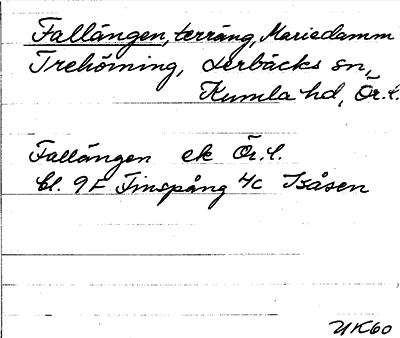 Fallängen, terräng, Mariedamm
Trehörning, Lerbäcks sn,
Kumla hd, Ör.l.
Fallängen ek Ör.l.
bl. 9F Finspång 4c Isåsen
UK60